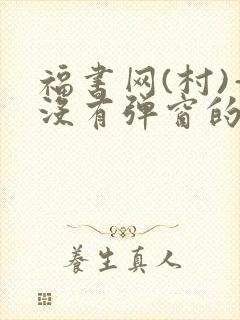 福書网(村)
没有弹窗的
養生真人